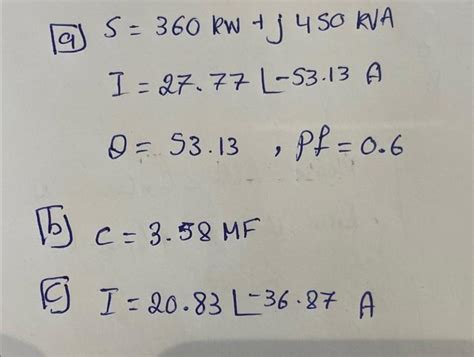 a) S = 360 kW + j 450 kVA
I = 27.77 ∠-53.13 A
θ = 53.13 , Pf = 0.6
b) C = 3.58 MF
c) I = 20.83 ∠-36.87 A